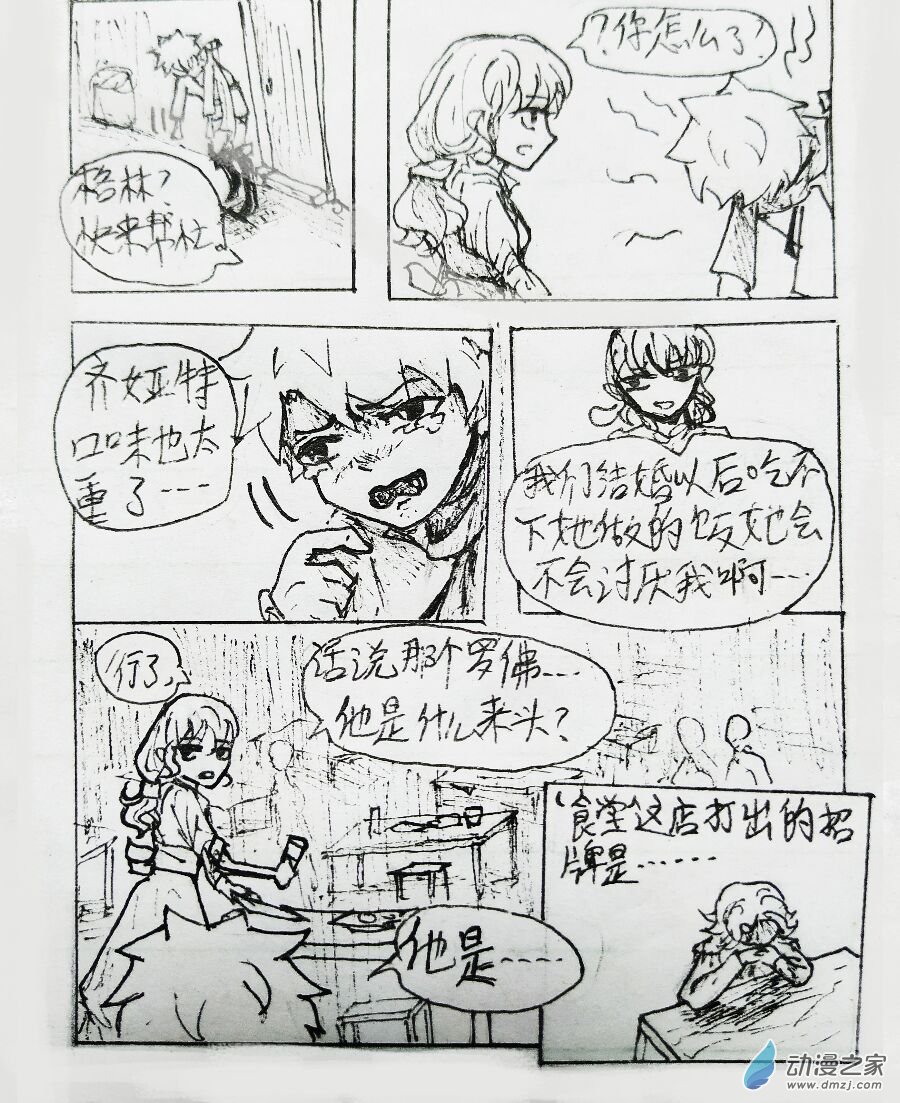 格林？
快来帮忙。
？你怎么了？
齐娅特
口味也太
重了----
我们结婚以后吃不
下她做的饭她会
不会讨厌我啊----
行了，
话说那个罗佛----
他是什么来头？
食堂这店打出的招
牌是------
他是-----
动漫之家
www.dmzj.com